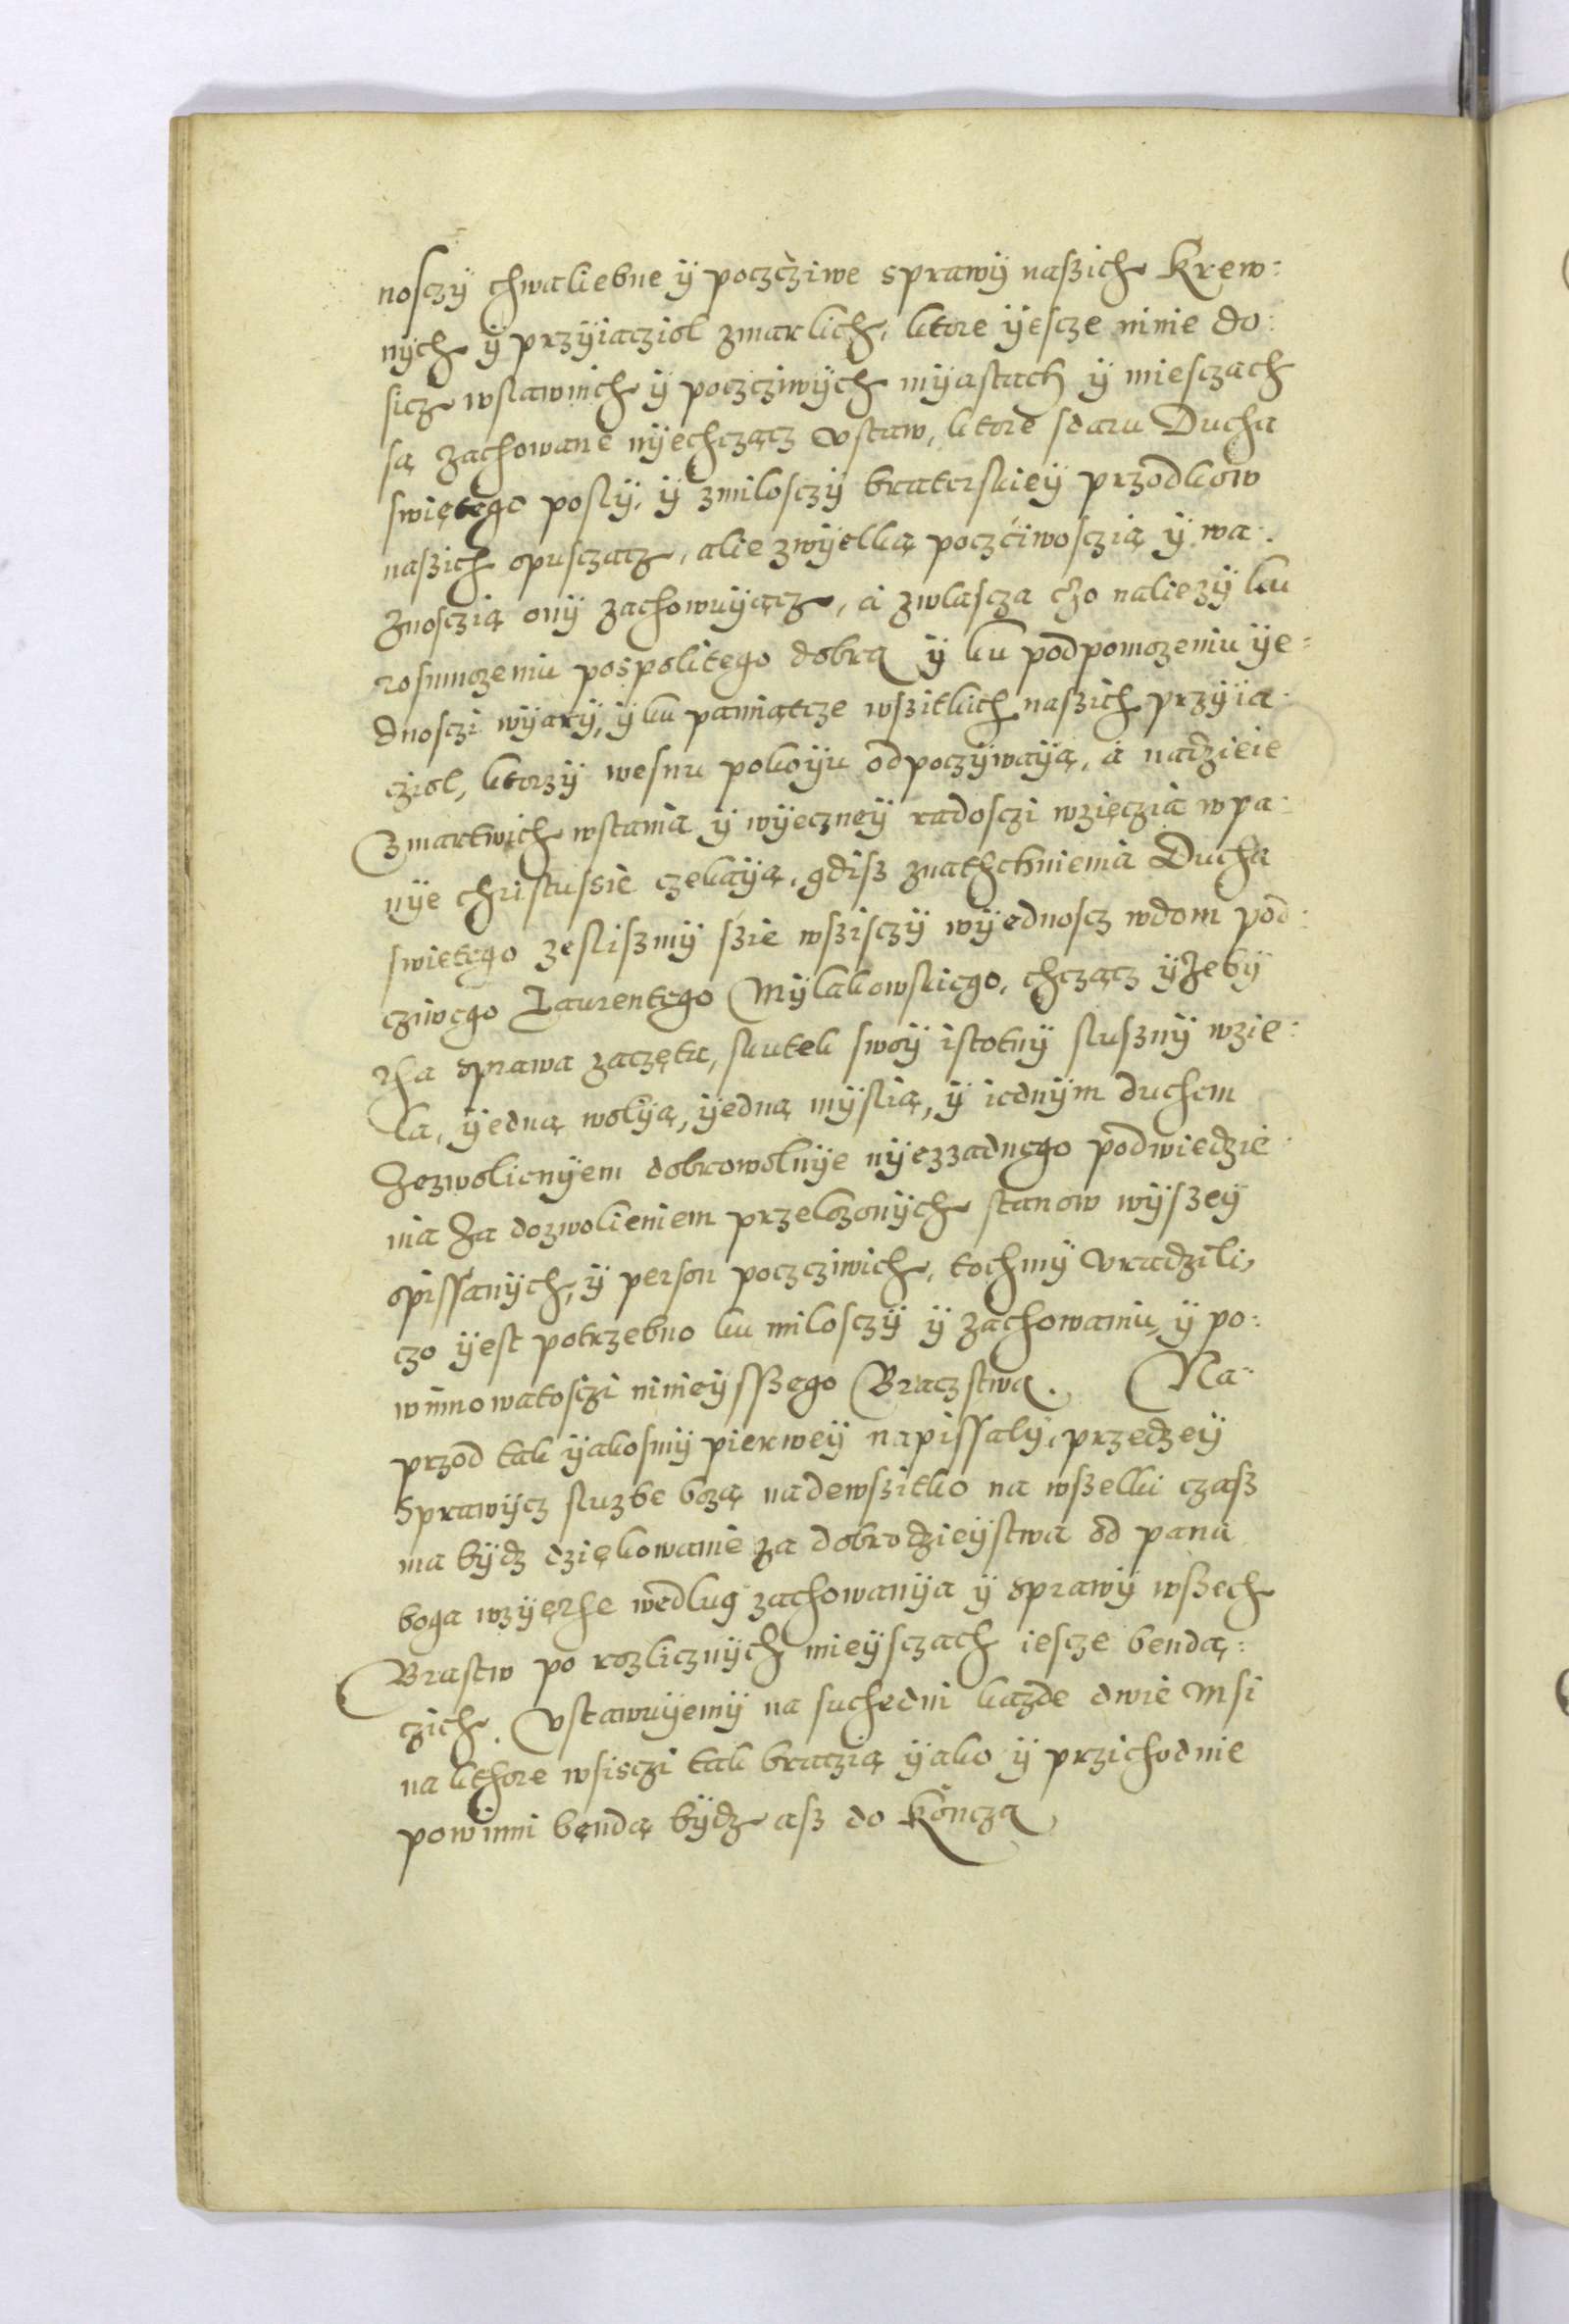 nosczÿ chwaliebne ÿ poczcziwe sprawÿ naßich Krew:
nÿch ÿ przÿiacziol zmarlich, ktore ÿescze ninie do:
sicz wslawnich ÿ poczcziwÿch mÿastach ÿ miesczach
są zachowane nÿechcżącz vstaw, ktore sdaru Ducha
swiętego poslÿ, ÿ zmilosczÿ braterskieÿ przodkow
naßich opusczacz, alie zwÿelką poczciwosczią ÿ wa:
znosczią onÿ zachowuÿącz, à zwlascza czo naliezÿ ku
rosmnozeniu pospolitego dobra ÿ ku podpomozeniu ÿe:
dnosczi wÿarÿ, ÿ ku pamiątcze wßitkich naßich przÿia:
cziol, ktorzÿ wesnu pokoÿu odpoczÿwaÿą, à nadzieie
Zmartwich wstania ÿ wÿeczneÿ radosczi wzięczia wpa:
nÿe christussie czekaÿą, gdisz znathchnienia Ducha
swietego zeslißmÿ ßie wßisczÿ wÿednoscz wdom pod:
cziwego Laurentego Mÿlakowskiego, chcżącz ÿżebÿ
tha sprawa zaczęta, skutek swoÿ istotnÿ slusznÿ wzie:
la, ÿedną wolÿą, ÿedną mÿslią, ÿ iednÿm duchem
Zezwolienÿem dobrowolnÿe nÿezzadnego podwiedzie:
nia Za dozwolieniem przelozonÿch stanow wÿßeÿ
opissanÿch, ÿ person poczcziwich, tochmÿ vradzili,
czo ÿest potrzebno ku milosczÿ ÿ zachowaniu, ÿ po:
winnowatosczi ninieÿssßego Braczstwa. Na:
przod tak ÿakosmÿ pierweÿ napissalÿ, przedzeÿ
Sprawÿcz sluzbe bozą nadewßitko na wßelki czasz
ma bÿdz dziękowanie za dobrodzieÿstwa od pana
boga wzÿęthe wedlug zachowanÿa ÿ sprawÿ wßech
Brastw po rozlicznÿch mieÿsczach iescze bendą:
czich. Vstawuÿemÿ na suchedni kazde dwie Msi
na kthore wsisczi tak braczią ÿako ÿ przichodnie
powinni bęndą bÿdz asz do Koncza